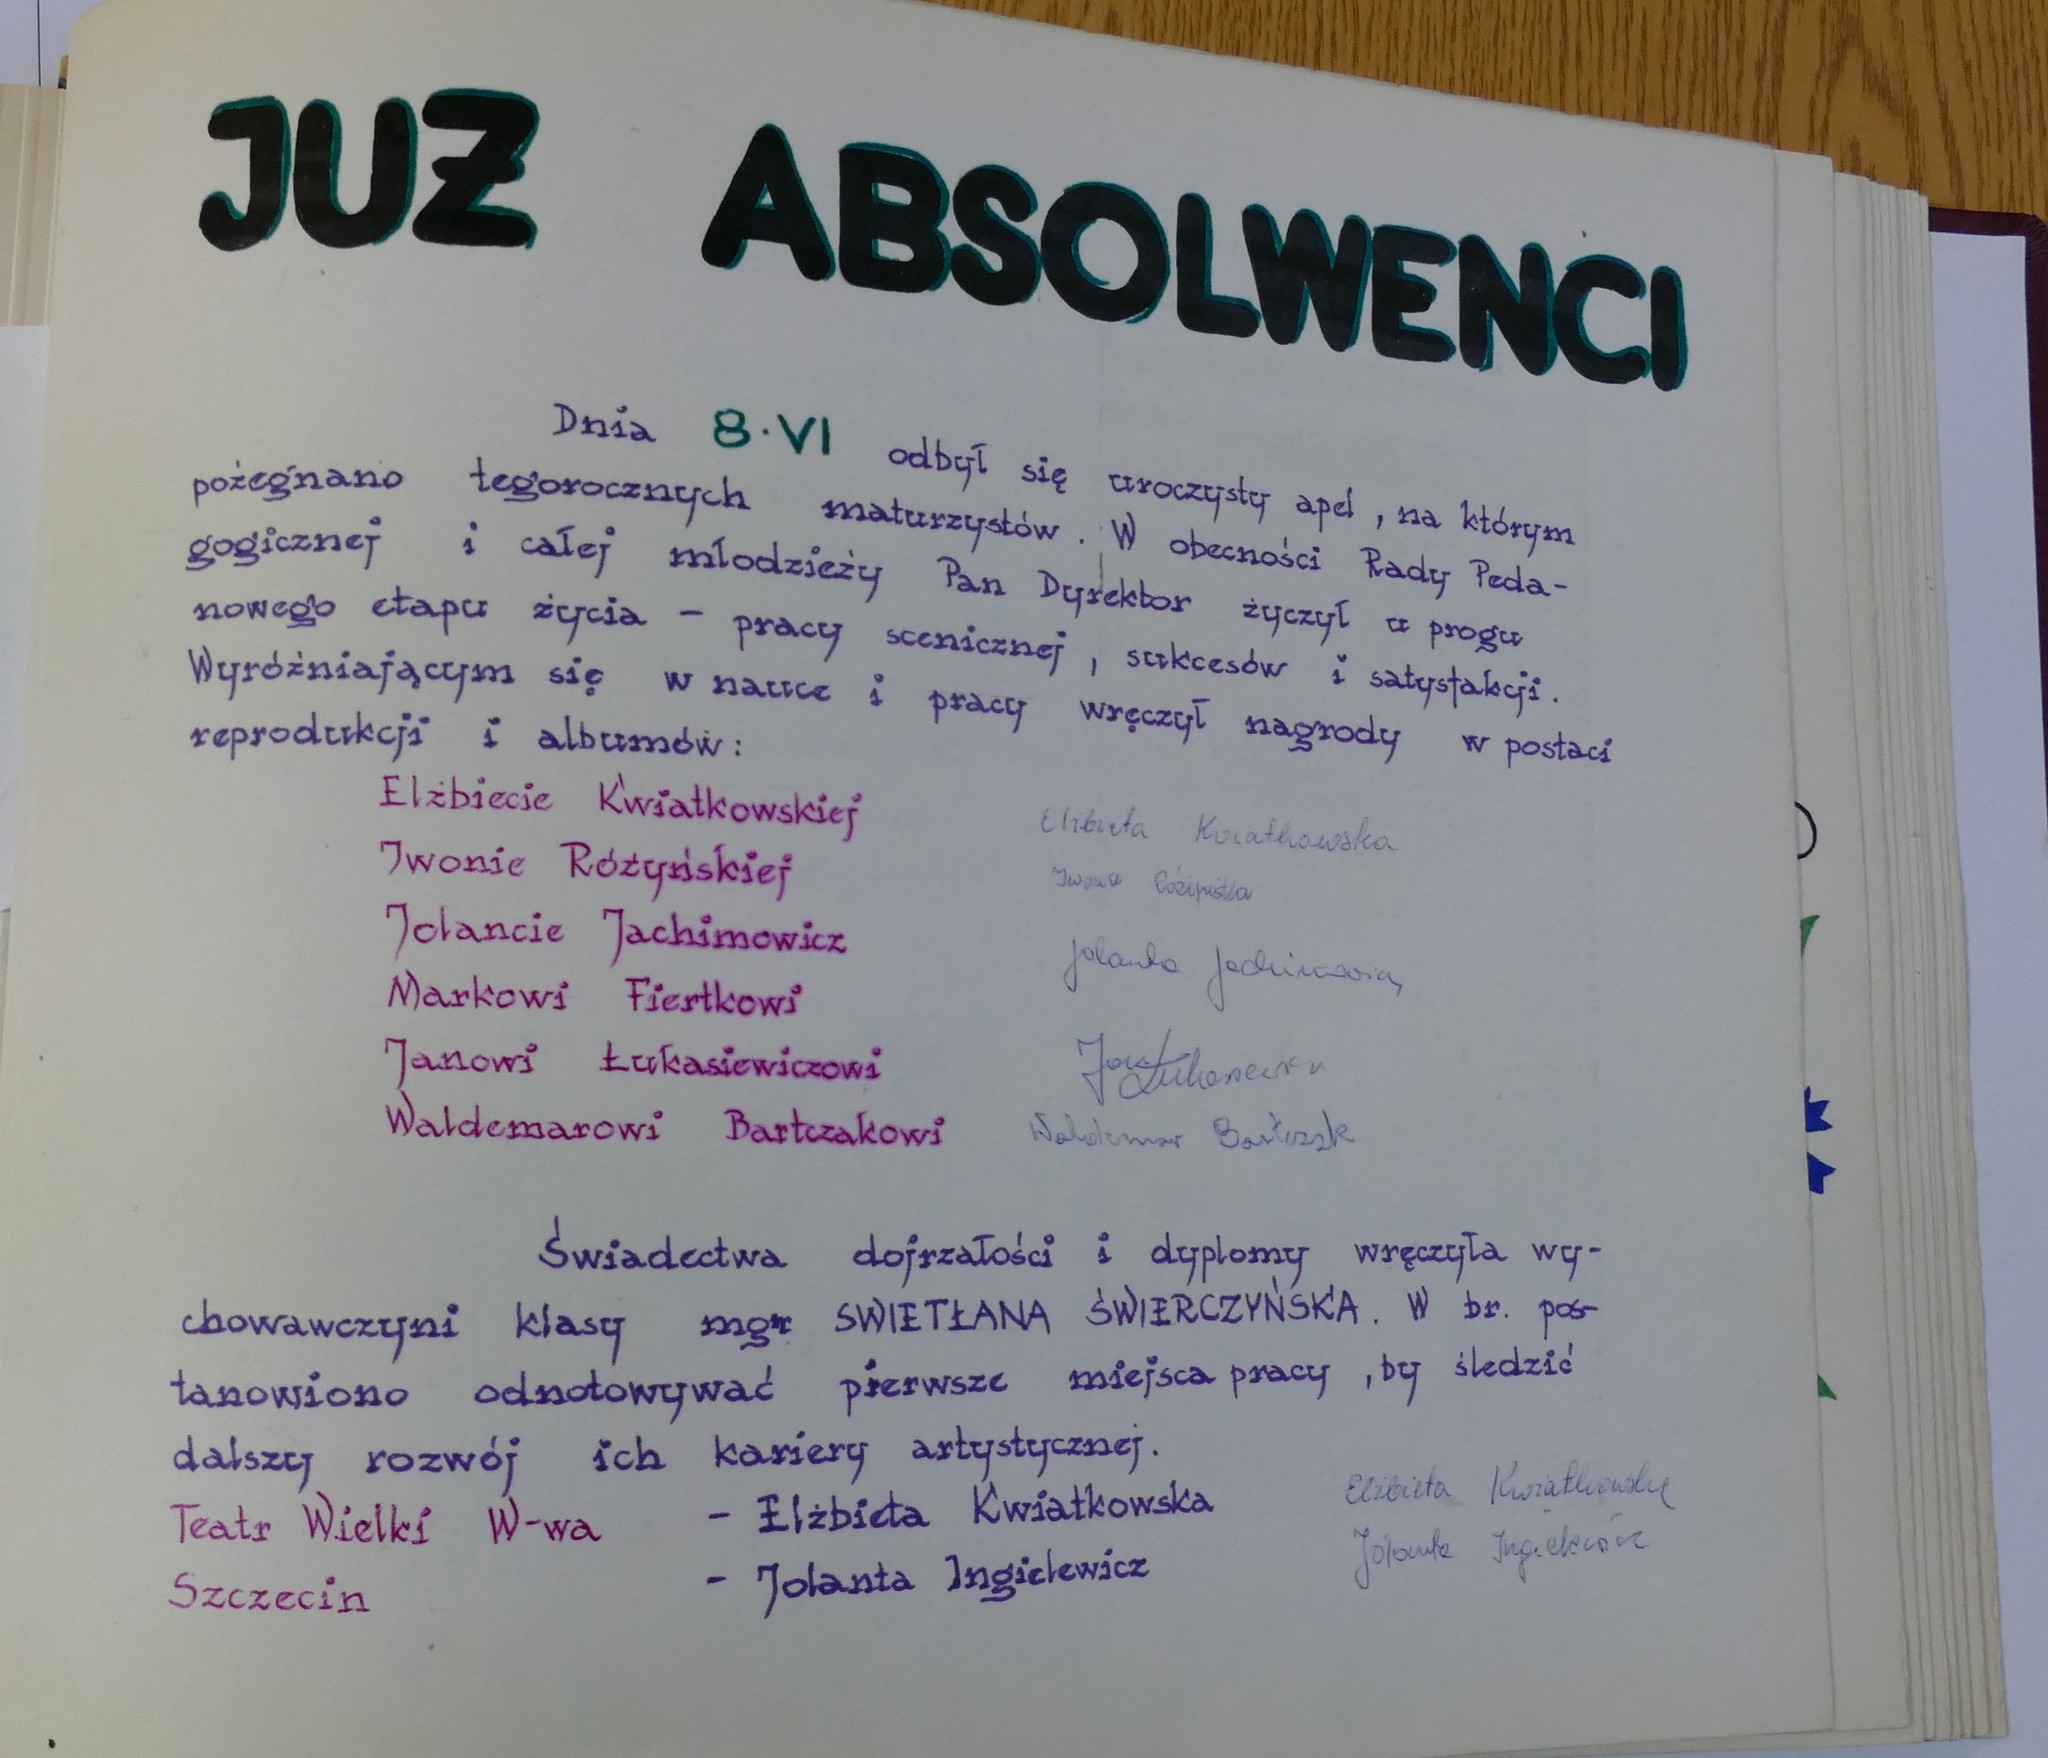 JUŻ ABSOLWENCI
Dnia 8.VI odbył się uroczysty apel, na którym
pożegnano tegorocznych maturzystów. W obecności Rady Peda-
gogicznej i całej młodzieży Pan Dyrektor życzył u progu
nowego etapu życia - pracy scenicznej, sukcesów i satysfakcji.
Wyróżniającym się w nauce i pracy wręczył nagrody w postaci
reprodukcji i albumów:
Elżbiecie Kwiatkowskiej Elżbieta Kwiatkowska
Iwonie Różyńskiej Iwona Różyńska
Jolancie Jachimowicz Jolanta Jachimowicz
Markowi Fiertkowi
Janowi Łukasiewiczowi Jan
Waldemarowi Bartczakowi Waldemar Bartczak
Świadectwa dojrzałości i dyplomy wręczyła wy-
chowawczyni klasy mgr SWIETŁANA ŚWIERCZYŃSKA. W br. pos-
tanowiono odnotowywać pierwsze miejsca pracy, by śledzić
dalszy rozwój ich kariery artystycznej.
Teatr Wielki W-wa - Elżbieta Kwiatkowska Elżbieta Kwiatkowska
Szczecin - Jolanta Ingielewicz Jolanta Ingielewicz